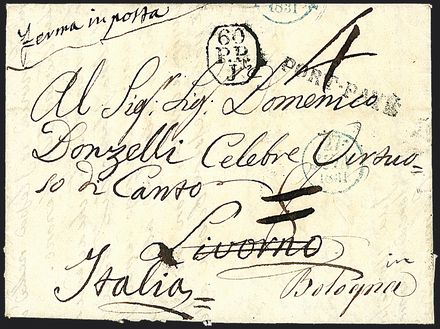 1831
Ferma in posta
60
P.P.
PORT-PAYÉ
Al Sigr. Sig. Domenico
Donzelli Celebre Virtuo=
so di Canto
1831
Livorno
in
Italia
Bologna